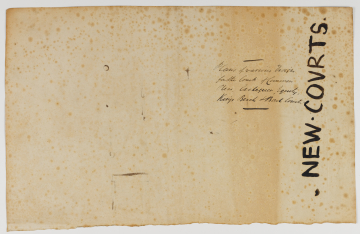 Plans of various Designs
for the Court of Common
Pleas Exchequer Equity
Kings Bench & Bail Court
NEW·COVRTS·